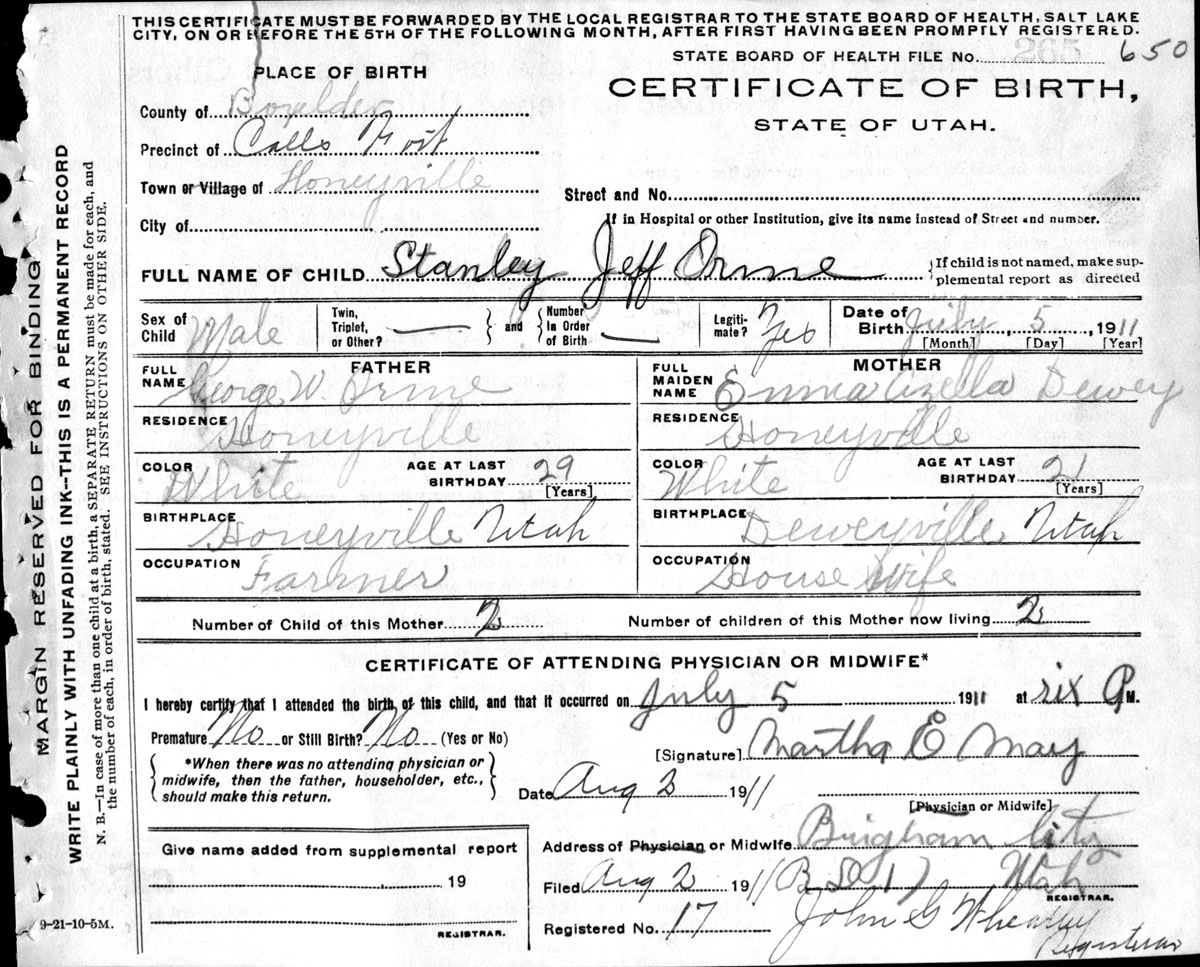 THIS CERTIFICATE MUST BE FORWARDED BY THE LOCAL REGISTRAR TO THE STATE BOARD OF HEALTH, SALT LAKE
CITY, ON OR BEFORE THE 5TH OF THE FOLLOWING MONTH, AFTER FIRST HAVING BEEN PROMPTLY REGISTERED.
STATE BOARD OF HEALTH FILE No. 650
PLACE OF BIRTH
CERTIFICATE OF BIRTH,
STATE OF UTAH.
County of Boxelder
Precinct of Calls Fort
Town or Village of Honeyville
Street and No.
City of
If in Hospital or other Institution, give its name instead of Street and number.
FULL NAME OF CHILD Stanley Jeff Orme {If child is not named, make sup-
plemental report as directed
Sex of Child Male
Twin, Triplet, or Other? — } and { Number In Order of Birth —
Legiti-mate? Yes
Date of Birth July 5, 1911
[Month] [Day] [Year]
FATHER
MOTHER
FULL NAME George W. Orme
FULL MAIDEN NAME Emma Azella Dewey
RESIDENCE Honeyville
RESIDENCE Honeyville
COLOR White AGE AT LAST BIRTHDAY 29 [Years]
COLOR White AGE AT LAST BIRTHDAY 21 [Years]
BIRTHPLACE Honeyville Utah
BIRTHPLACE Deweyville Utah
OCCUPATION Farmer
OCCUPATION House Wife
Number of Child of this Mother 2
Number of children of this Mother now living 2
CERTIFICATE OF ATTENDING PHYSICIAN OR MIDWIFE*
I hereby certify that I attended the birth of this child, and that it occurred on July 5 1911 at six P M.
Premature No or Still Birth? No (Yes or No)
[Signature] Martha E May
{ *When there was no attending physician or
midwife, then the father, householder, etc.,
should make this return. }
Date Aug 2 1911
[Physician or Midwife]
Give name added from supplemental report
19
REGISTRAR.
Address of Physician or Midwife Brigham City
Utah
Filed Aug 2 1911 B D 17
REGISTRAR.
Registered No. 17 John G Wheatley
Registrar
MARGIN RESERVED FOR BINDING
WRITE PLAINLY WITH UNFADING INK--THIS IS A PERMANENT RECORD
N. B.—In case of more than one child at a birth, a SEPARATE RETURN must be made for each, and
the number of each, in order of birth, stated. SEE INSTRUCTIONS ON OTHER SIDE.
9-21-10-5M.